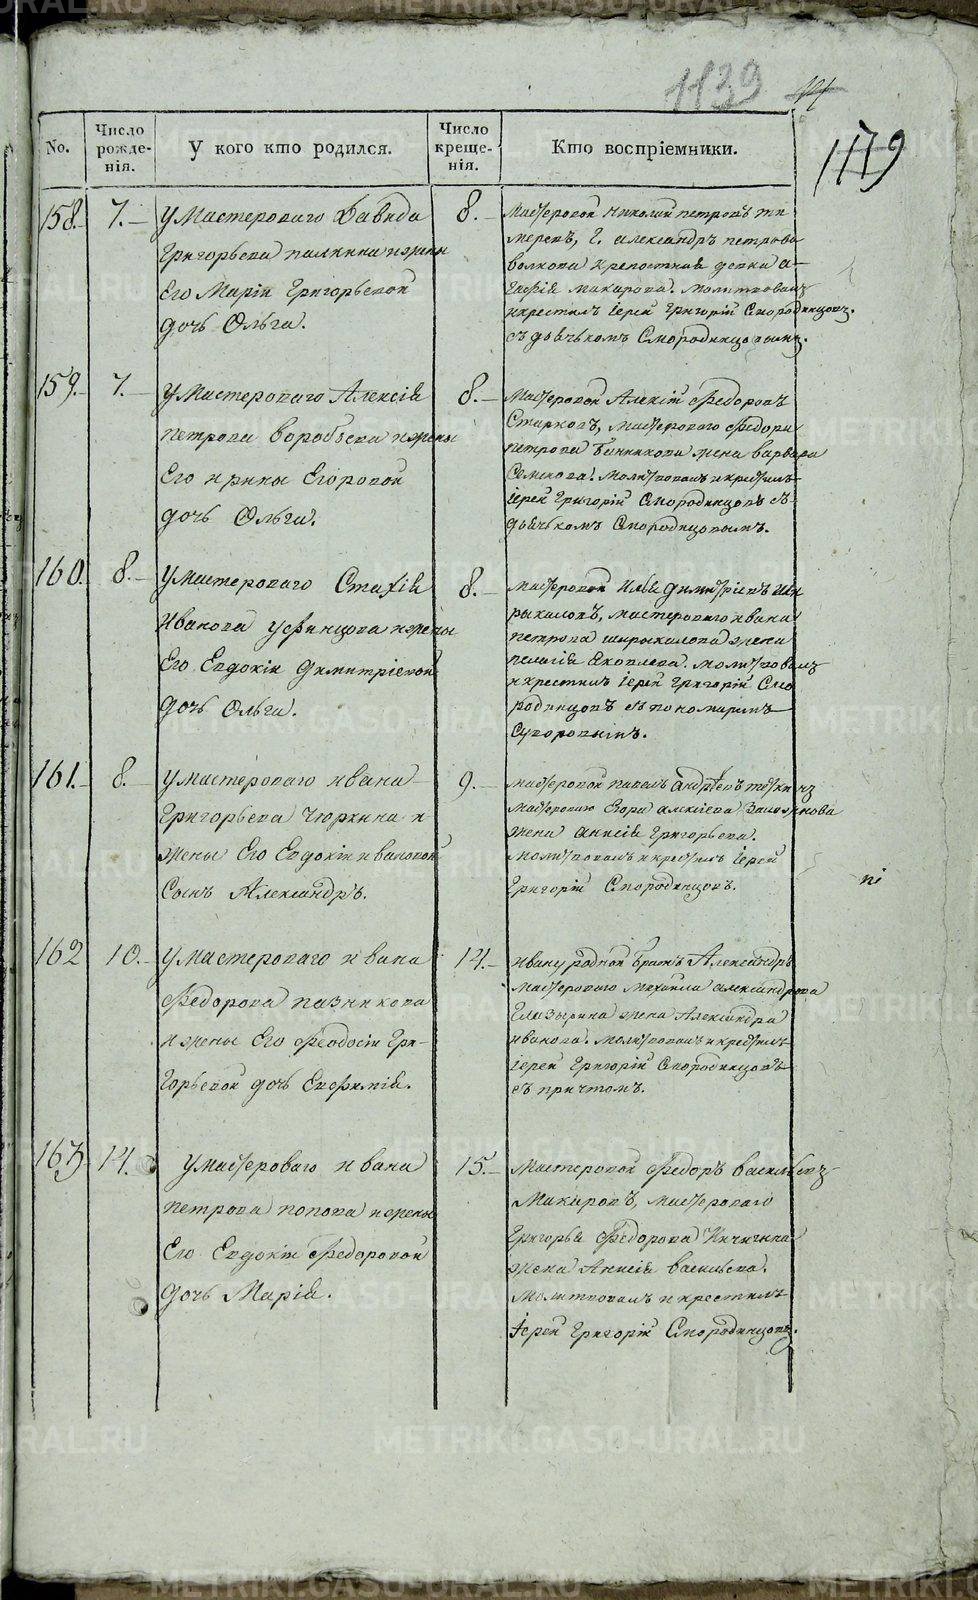 1139
1119
No.
Число рожде-нія.
У кого кто родился.
Число креще-нія.
Кто воспріемники.
158. 7. У Мастероваго Давида
Григорьева Палкина и жены
Его Маріи Григорьевой
дочь Ольга.
8. Мастеровой Николай Петровъ
Г. Александръ Петрова
Волкова крепостная девка А-
гафія Макарова. Молитвовалъ
и крестилъ Іерей Григорій Смородинцовъ.
съ дьячькомъ Смородинцовымъ.
159. 7. У Мастероваго Алексія
Петрова Воробьева и жены
Его Ирины Егоровой
дочь Ольга.
8. Мастеровой Алексій Федоровъ
Старковъ, Мастероваго Федора
Петрова Банникова жена Варвара
Семенова. Молитвовалъ и крестилъ
Іерей Григорій Смородинцовъ съ
дьячькомъ Смородинцовымъ.
160. 8. У Мастероваго Стахія
Иванова Уфинцова и жены
Его Евдокіи Димитріевой
дочь Ольга.
8. Мастеровой Илья Димитріевъ Ши
рыкаловъ, мастероваго Ивана
Петрова Ширыкалова жена
Пелагія Яковлева. Молитвовалъ
и крестилъ Іерей Григорій Смо
родинцовъ съ пономаремъ
Суворовымъ.
161. 8. У Мастероваго Ивана
Григорьева Чюркина и
жены Его Евдокіи Ивановой
Сынъ Александръ.
9. Мастеровой Павелъ Андреевъ
Мастероваго Егора Алексіева
жена Анисія Григорьева.
Молитвовалъ и крестилъ Іерей
Григорій Смородинцовъ.
162 10. У Мастероваго Ивана
Федорова Пазникова
и жены Его Феодосіи Гри-
горьевой дочь Евфимія.
14. Ивану родной братъ Александръ
Мастероваго Михаила Александрова
Глазырина жена Александра
Иванова. Молитвовалъ и крестилъ
Іерей Григорій Смородинцовъ
съ причтомъ.
163 14. У Мастероваго Ивана
Петрова Попова и жены
Его Евдокіи Федоровой
дочь Марія.
15. Мастеровой Федоръ Васильевъ
Макаровъ, Мастероваго
Григорья Федорова Кичигина
жена Анисія Васильева.
Молитвовалъ и крестилъ
Іерей Григорій Смородинцовъ.
METRIKI.GASO-URAL.RU